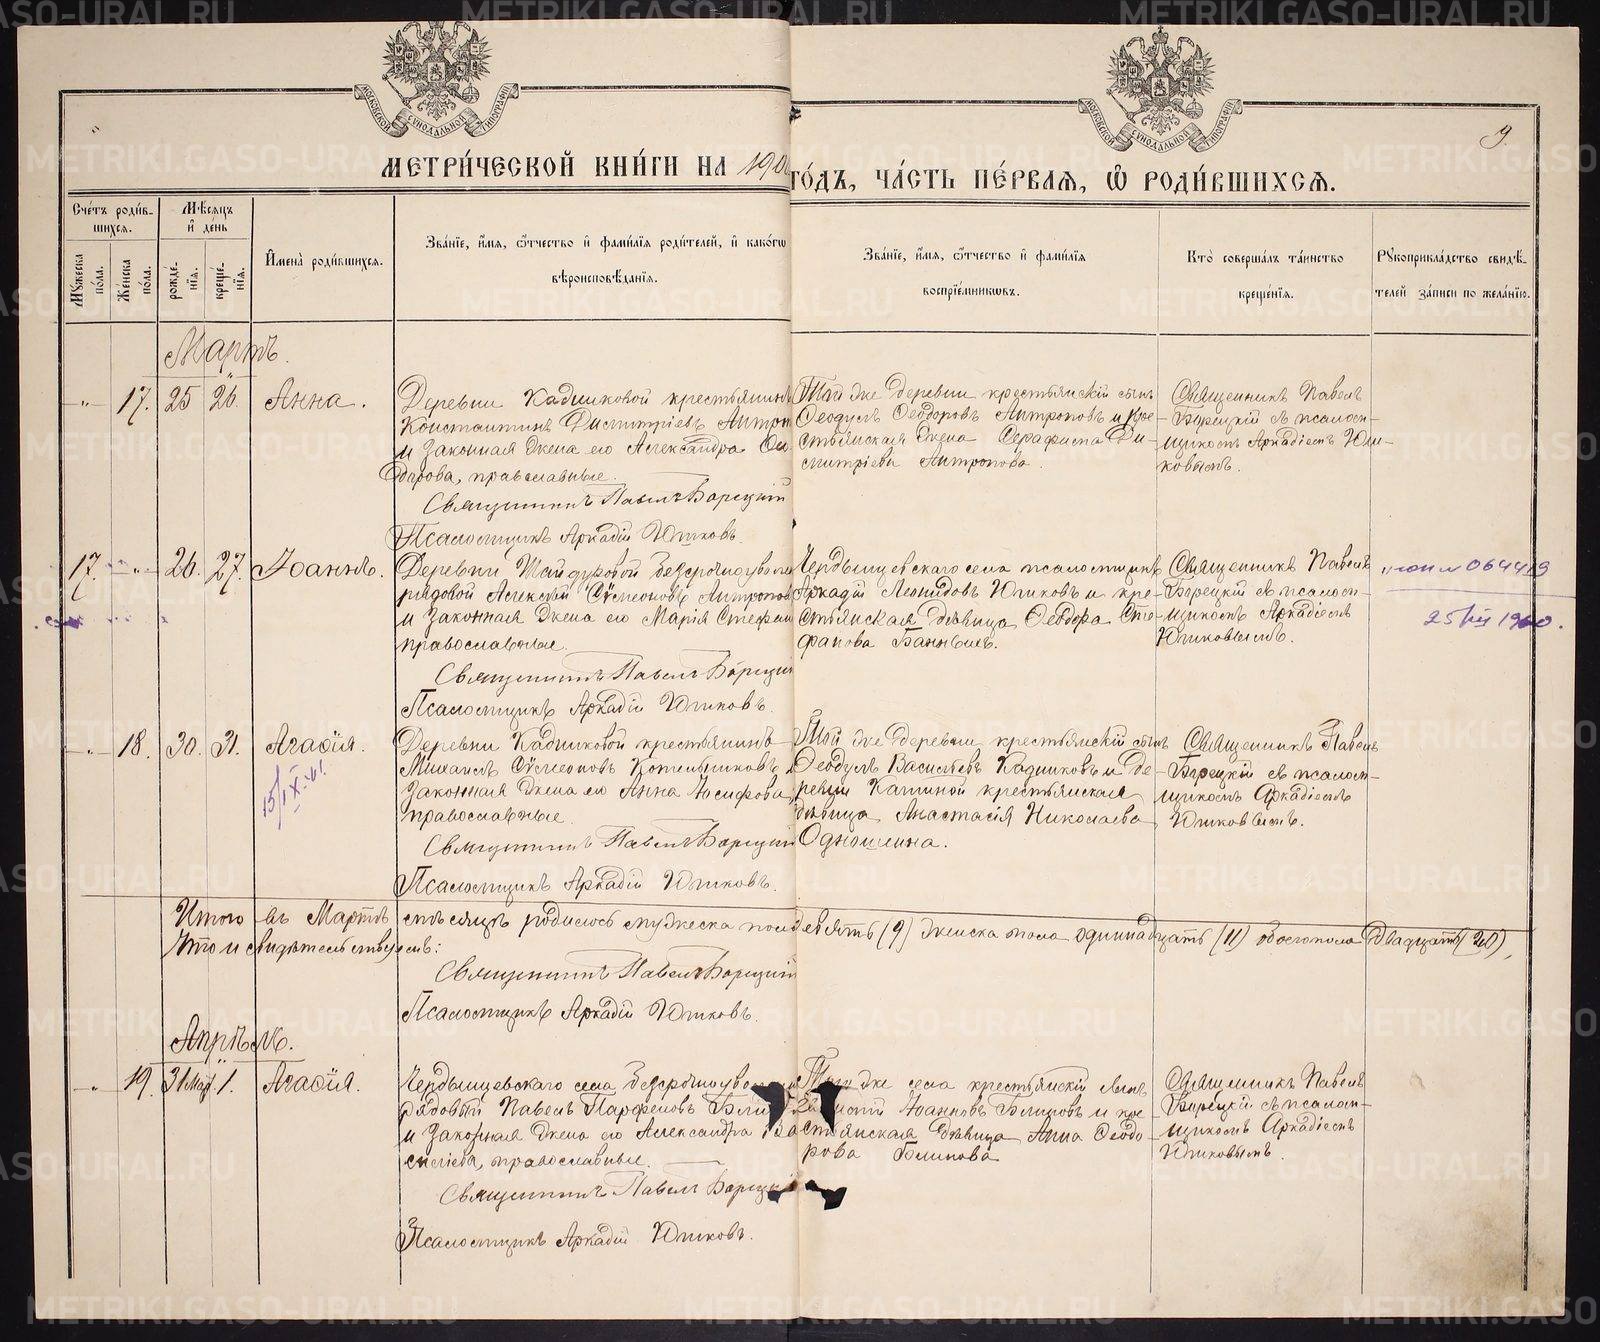 МОСКОВСКОЙ СУНОДАЛЬНОЙ ТИПОГРАФІИ
МОСКОВСКОЙ СУНОДАЛЬНОЙ ТИПОГРАФІИ
9.
МЕТРИ́ЧЕСКОЙ КНИ́ГИ НА 190
ГО́ДЪ, ЧА́СТЬ ПЕ́РВАЯ, Ѽ РОДИ́ВШИХСЯ.
Сче́тъ роди́в-
шихся.
Мѣ́сяцъ
и҆ де́нь
Мꙋ́жеска по́ла.
Же́нска по́ла.
рожде́-
нїя.
креще́-
нїя.
И҆мена̀ роди́вшихся.
Зва́нїе, и҆́мя, ѻ҆́тчество и҆ фами́лїя роди́телей, и҆ како́гѡ
вѣроисповѣ́данїя.
Зва́нїе, и҆́мя, ѻ҆́тчество и҆ фами́лїя
воспрїе́мникѡвъ.
Кто̀ соверша́лъ та́инство
креще́нїя.
Рꙋкоприкла́дство свидѣ́-
телей за́писи по жела́нїю.
Мартъ.
-"- 17. 25 26. Анна.
Деревни Кадниковой крестьянинъ
Константинъ Димитріевъ Антроп
и законная жена его Александра Ѳео
дорова, православные.
Священникъ Павелъ Борецкій
Псаломщикъ Аркадій Юшковъ.
Той же деревни крестьянскій сынъ
Ѳеодулъ Ѳеодоровъ Антроповъ и кре-
стьянская жена Серафима Ди-
митріева Антропова.
Священникъ Павелъ
Борецкій съ псалом-
щикомъ Аркадіемъ Юш-
ковымъ.
17. -"- 26. 27. Іоаннъ.
Деревни Шайдуровой безсрочноуволен
рядовой Алексѣй Сѵмеоновъ Антропов
и законная жена его Марія Стефан
православные.
Священникъ Павелъ Борецкі
Псаломщикъ Аркадій Юшковъ.
Чердынцевскаго села псаломщикъ
Аркадій Леонидовъ Юшковъ и кре-
стьянская дѣвица Ѳеодора Сте-
фанова
Священникъ Павелъ
Борецкій съ псалом-
щикомъ Аркадіемъ
Юшковымъ.
064419
25/VII 1960.
-"- 18. 30. 31. Агаѳія.
Деревни Кадниковой крестьянинъ
Михаилъ Сѵмеоновъ Котельниковъ и
законная жена его Анна Іосифова,
православные.
Священникъ Павелъ Борецкій
Псаломщикъ Аркадій Юшковъ.
Той же деревни крестьянскій сынъ
Ѳеодулъ Васильевъ Кадниковъ и де-
ревни Каш­иной крестьянская
дѣвица Анастасія Николаева
Одношеина.
Священникъ Павелъ
Борецкій съ псалом-
щикомъ Аркадіемъ
Юшковымъ.
Итого въ Мартѣ мѣсяцѣ родилось мужеска пола девять (9) женска пола одиннадцать (11) обоего пола двадцать (20),
что и свидѣтельствуемъ:
Священникъ Павелъ Борецкій
Псаломщикъ Аркадій Юшковъ.
Апрѣль.
-"- 19. 31 Мар. 1. Агаѳія.
Чердынцевскаго села безсрочноуволенный
рядовый Павелъ Парфеновъ Блин
и законная жена его Александра Ва
силіева, православные.
Священникъ Павелъ Борецкій
Псаломщикъ Аркадій Юшковъ.
Того же села крестьянскій сынъ
Іоанновъ Блиновъ и кре-
стьянская дѣвица Анна Ѳеодо-
рова Блинова
Священникъ Павелъ
Борецкій съ псалом-
щикомъ Аркадіемъ
Юшковымъ.
METRIKI.GASO-URAL.RU